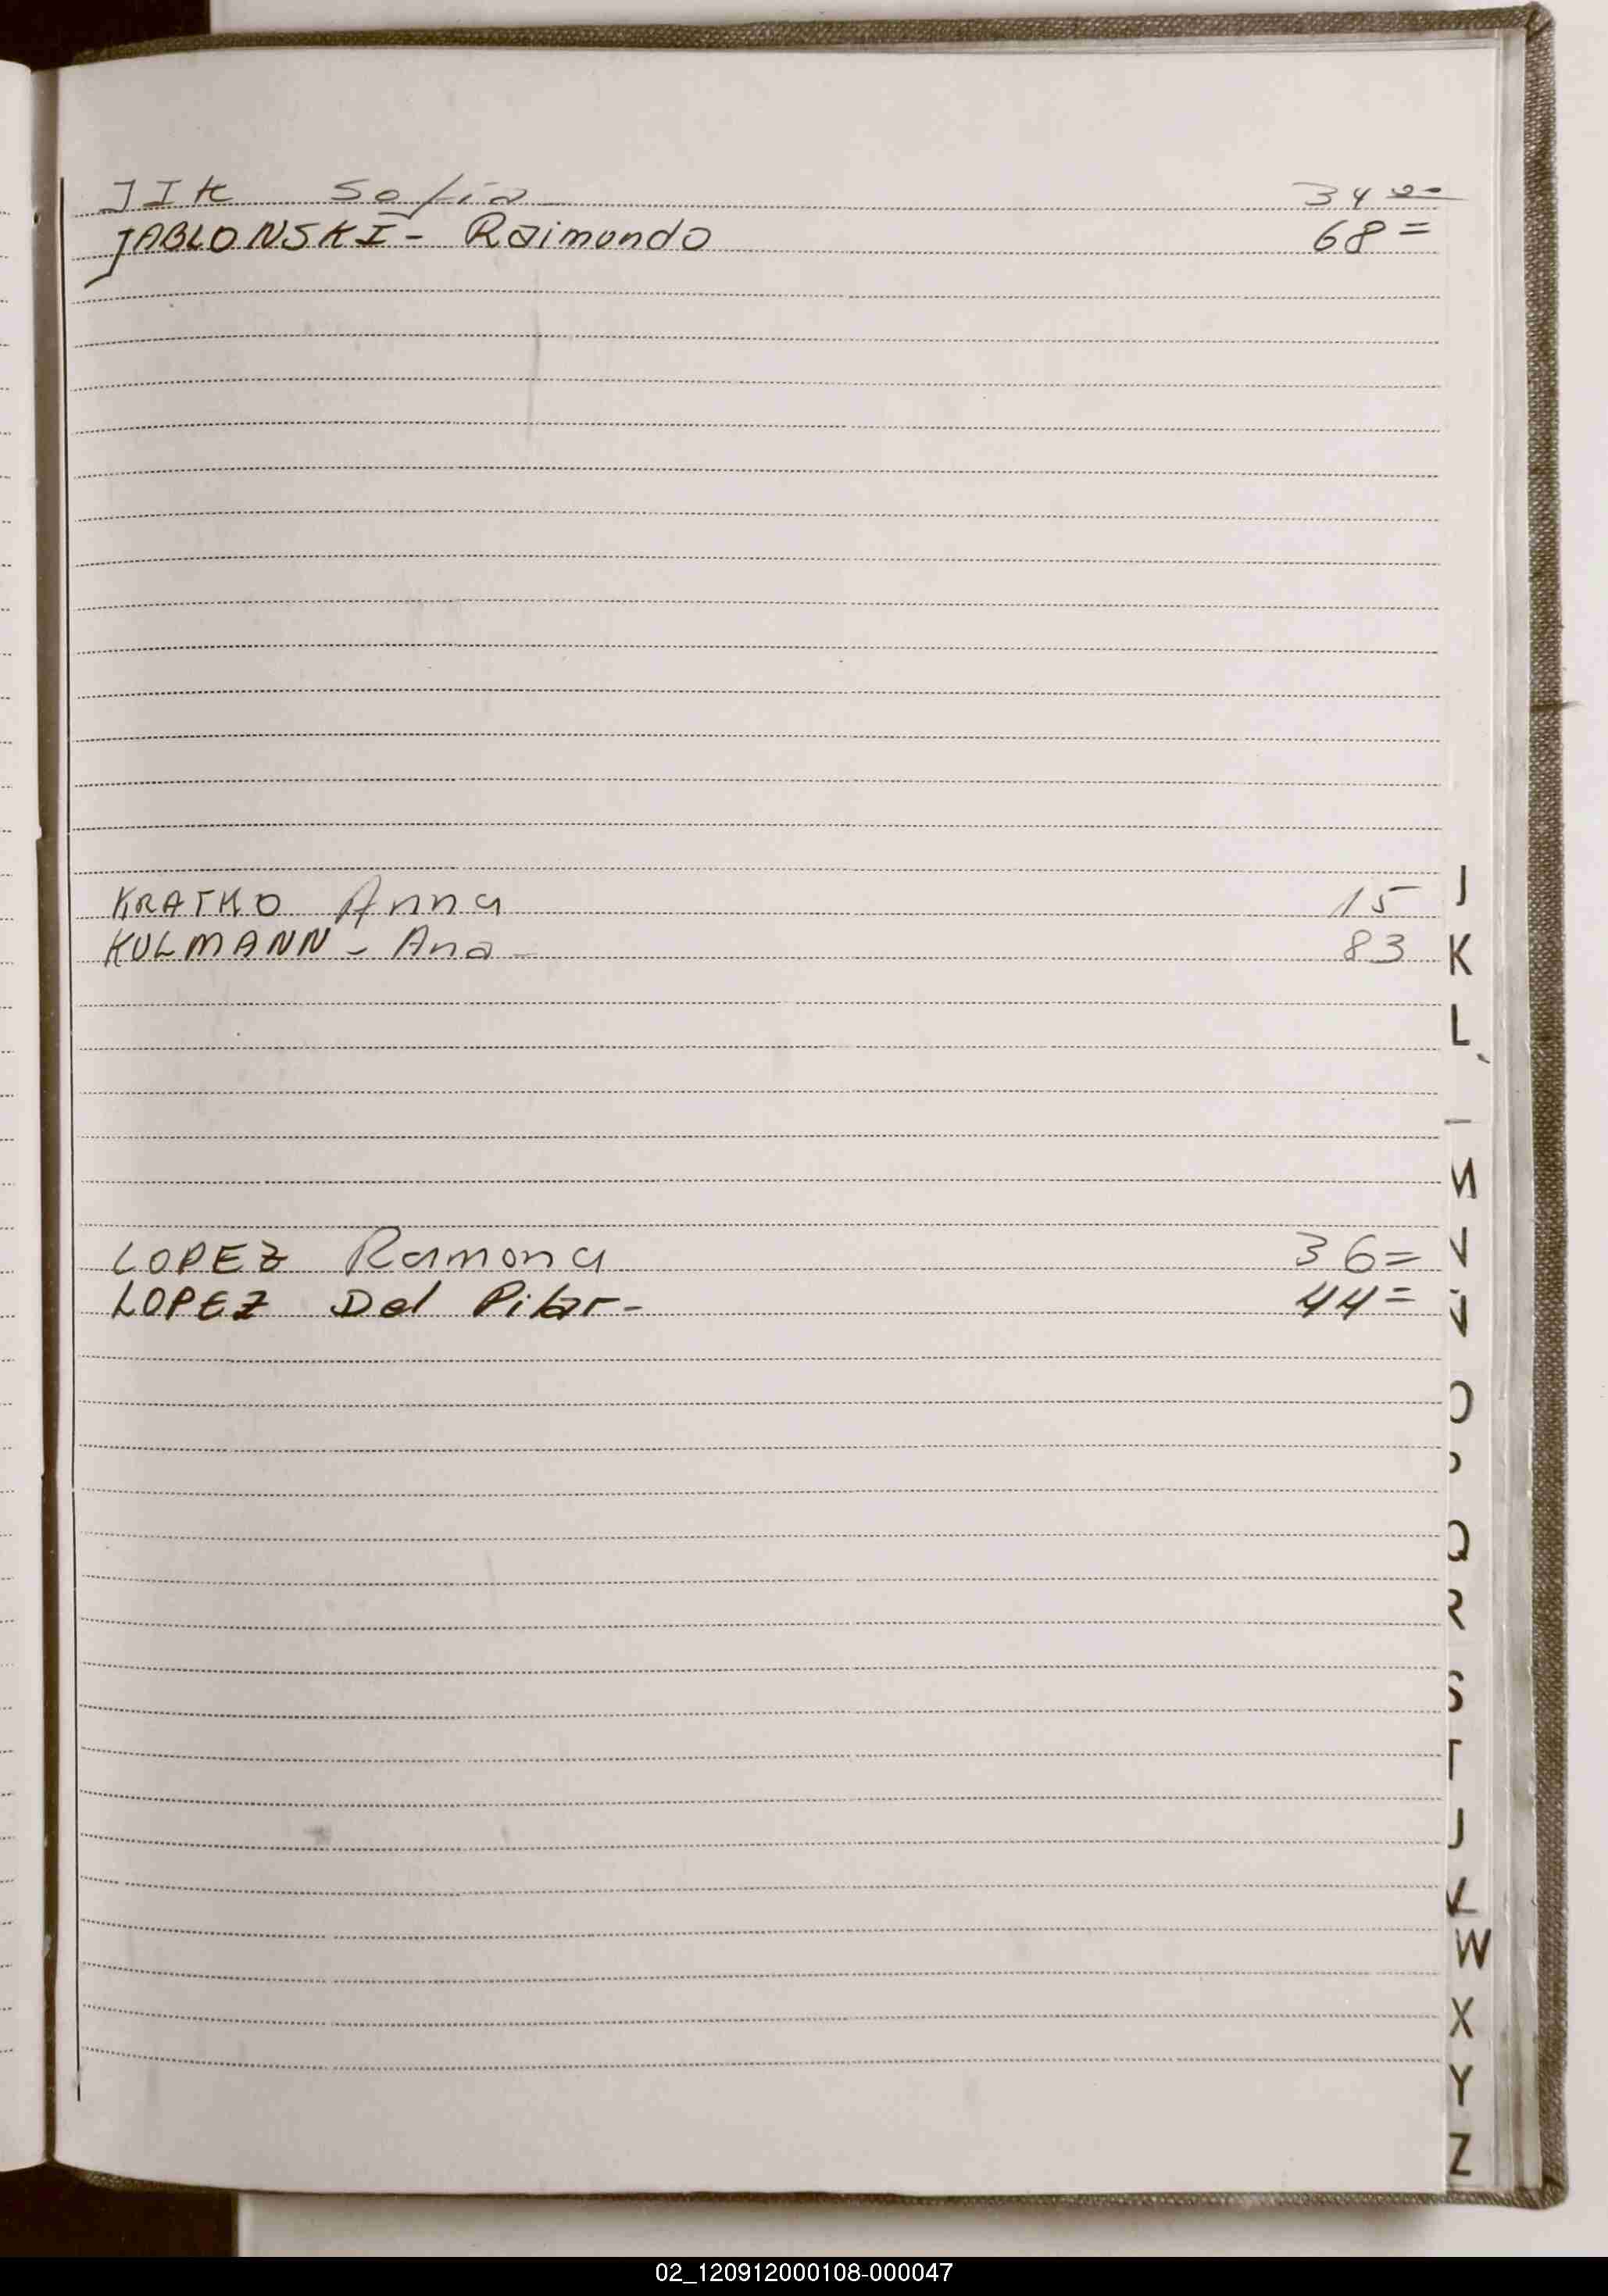 JIK Sofia 34
JABLONSKI - Raimundo 68 =
KRATKO Anna 15
KULMANN - Ana - 83
LOPEZ Ramona 36 =
LOPEZ Del Pilar - 44 =
J
K
L
M
N
Ñ
O
P
Q
R
S
T
U
V
W
X
Y
Z
02_120912000108-000047